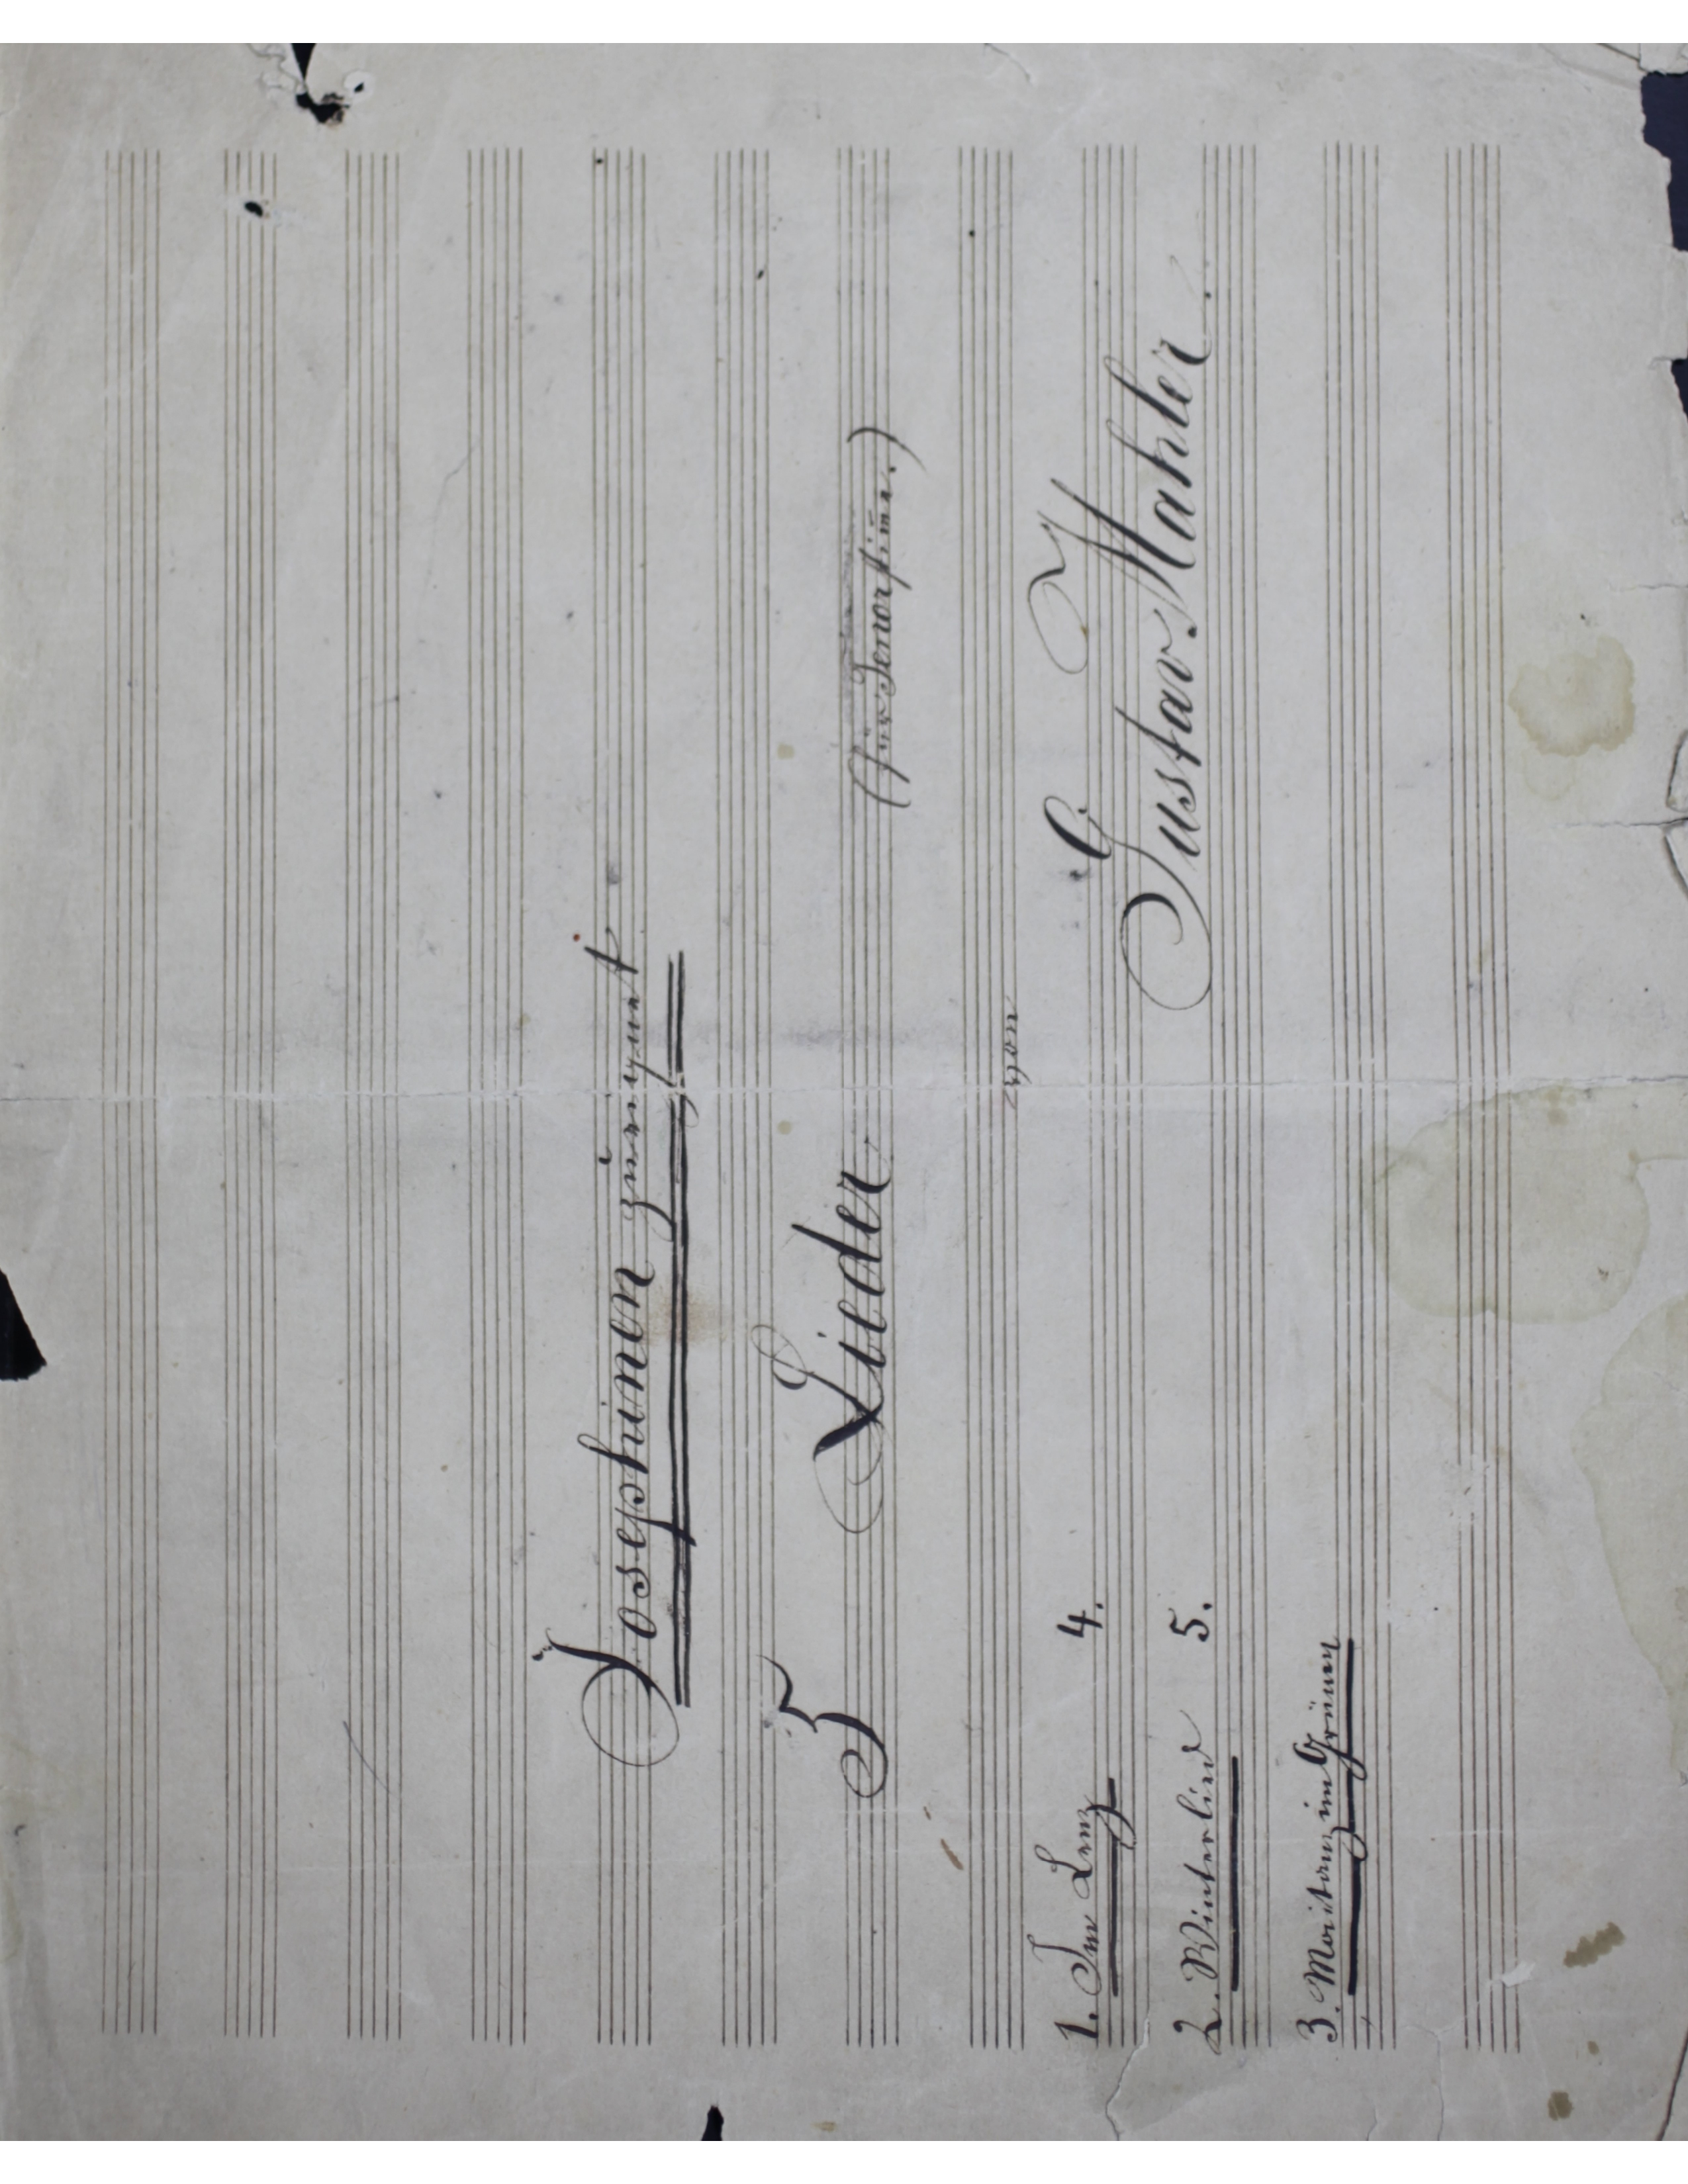 Josephinen zueigent
5 Lieder
(für Tenorstim̄e.)
von
Gustav Mahler.
1. Im Lenz 4.
2. Winterlied 5.
3. Maitanz im Grünen